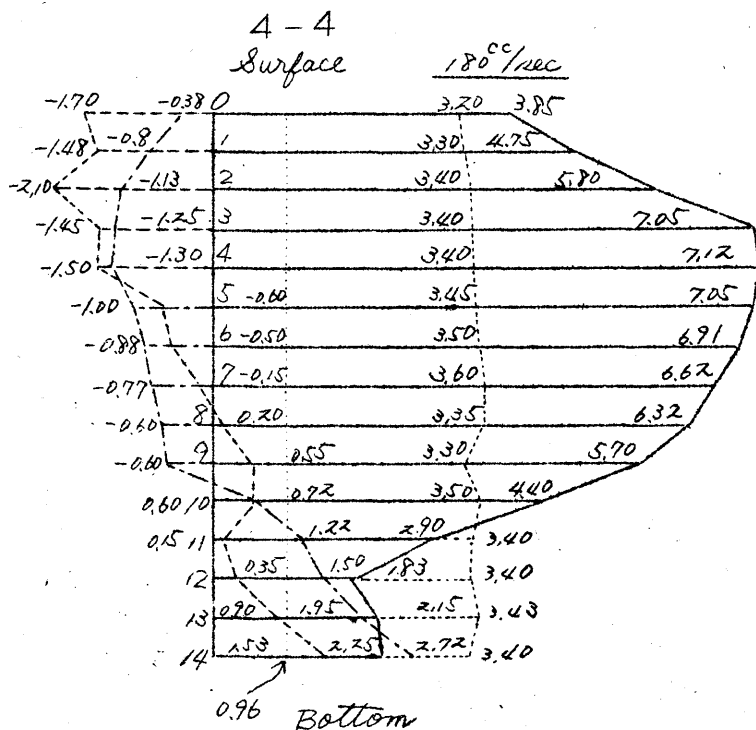 4-4
Surface 180 cc/sec
-1.70 -0.38 0 3.20 3.85
-1.48 -0.8 1 3.30 4.75
-2.10 -1.13 2 3.40 5.80
-1.45 -1.25 3 3.40 7.05
-1.50 -1.30 4 3.40 7.12
-1.00 5 -0.60 3.45 7.05
-0.88 6 -0.50 3.50 6.91
-0.77 7 -0.15 3.60 6.62
-0.60 8 0.20 3.35 6.32
-0.60 9 0.55 3.30 5.70
0.60 10 0.72 3.50 4.40
0.15 11 1.22 2.90 3.40
12 0.35 1.50 1.83 3.40
13 0.90 1.95 2.15 3.43
14 1.53 2.25 2.72 3.40
0.96 Bottom